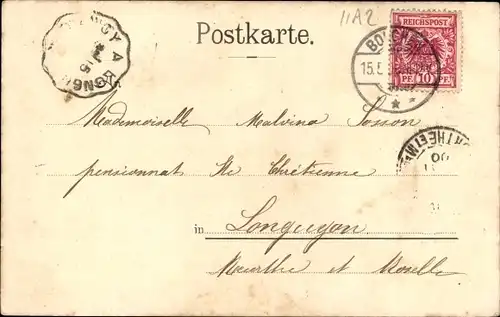 11A2
Postkarte.
REICHSPOST
PF 10 PF
15.5
Mademoiselle Malvina Sosson
pensionnat Ste Chrétienne
in Longuyon
Meurthe et Moselle